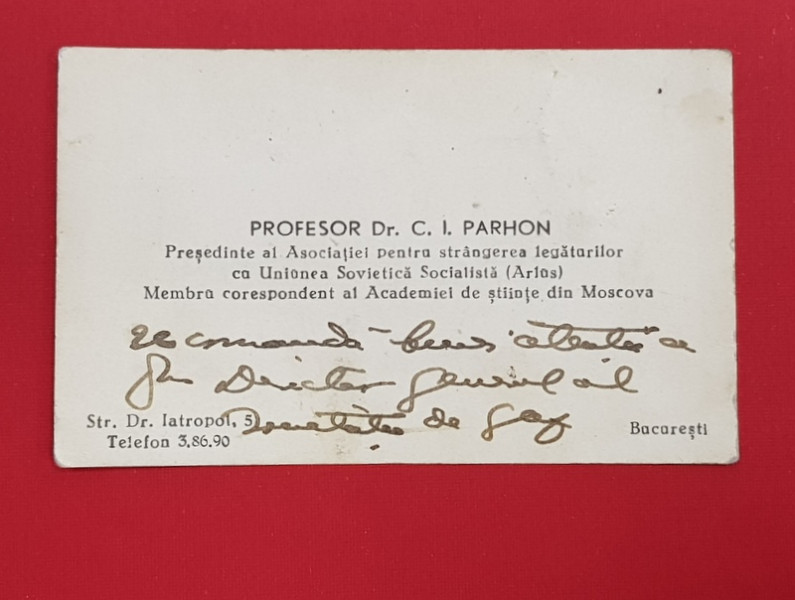 PROFESOR Dr. C. I. PARHON
Președinte al Asociației pentru strângerea legăturilor
cu Uniunea Sovietică Socialistă (Arlus)
Membru corespondent al Academiei de științe din Moscova
recomandă atenții a
Director General al
Str. Dr. Iatropol, 5 Societății de Gaz București
Telefon 3.86.90